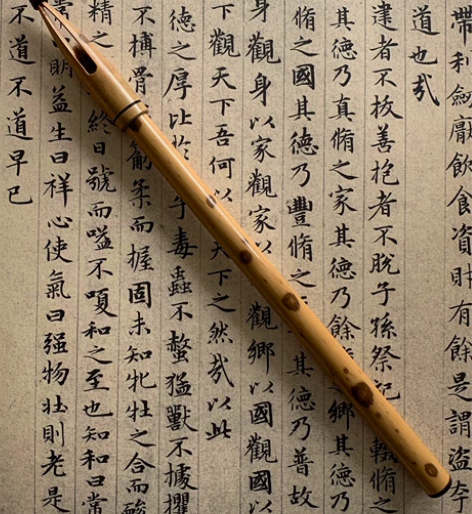 帶利劍厭飲食資財有餘是謂盜夸
道也哉
建者不拔善抱者不脫子孫祭祀輟脩之
其德乃真脩之家其德乃餘之鄉其德乃
脩之國其德乃豐脩之其德乃普故
身觀身以家觀家以觀鄉以國觀國以
下觀天下吾何以天下之然哉以此
德之厚比於子毒蟲不螫猛獸不據攫
不搏骨筋柔而握固未知牝牡之合而酸
精之終日號而嗌不嗄和之至也知和曰常
明益生曰祥心使氣曰强物壯則老是
不道不道早已